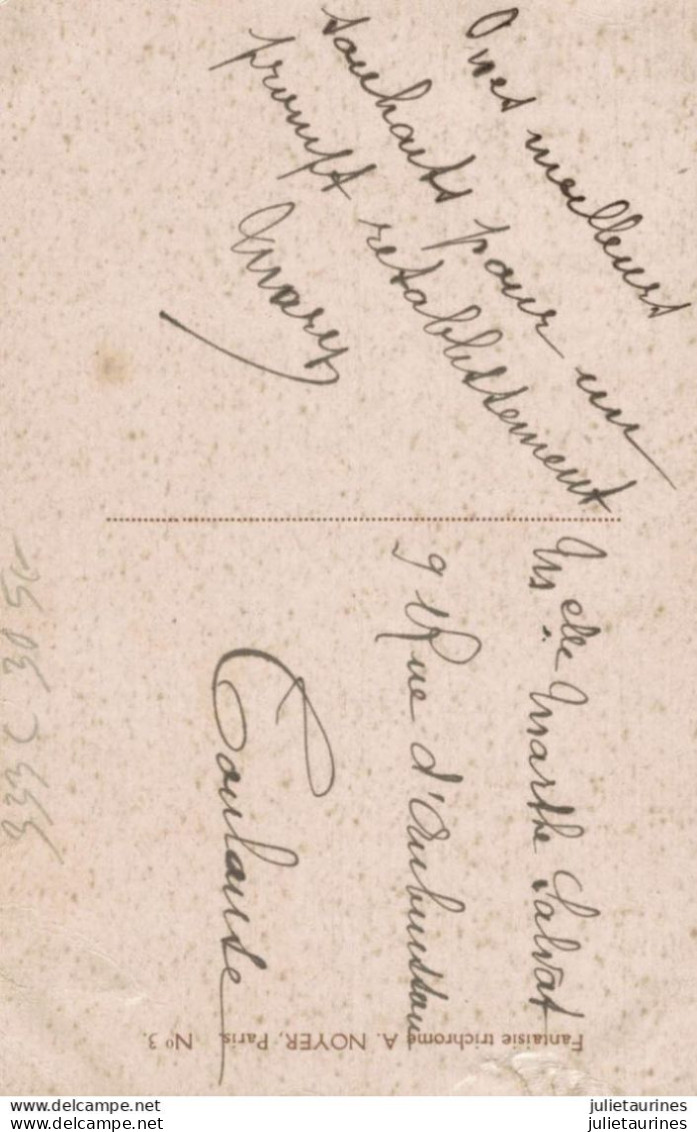 Mes meilleurs
souhaits pour un
prompt retablissement
Mary
Melle Marthe Salvat
9 Rue d'Aubusson
Toulouse
Fantaisie trichrome A. NOYER, Paris. No 3.
www.delcampe.net
www.delcampe.net
julietaurines
julietaurines